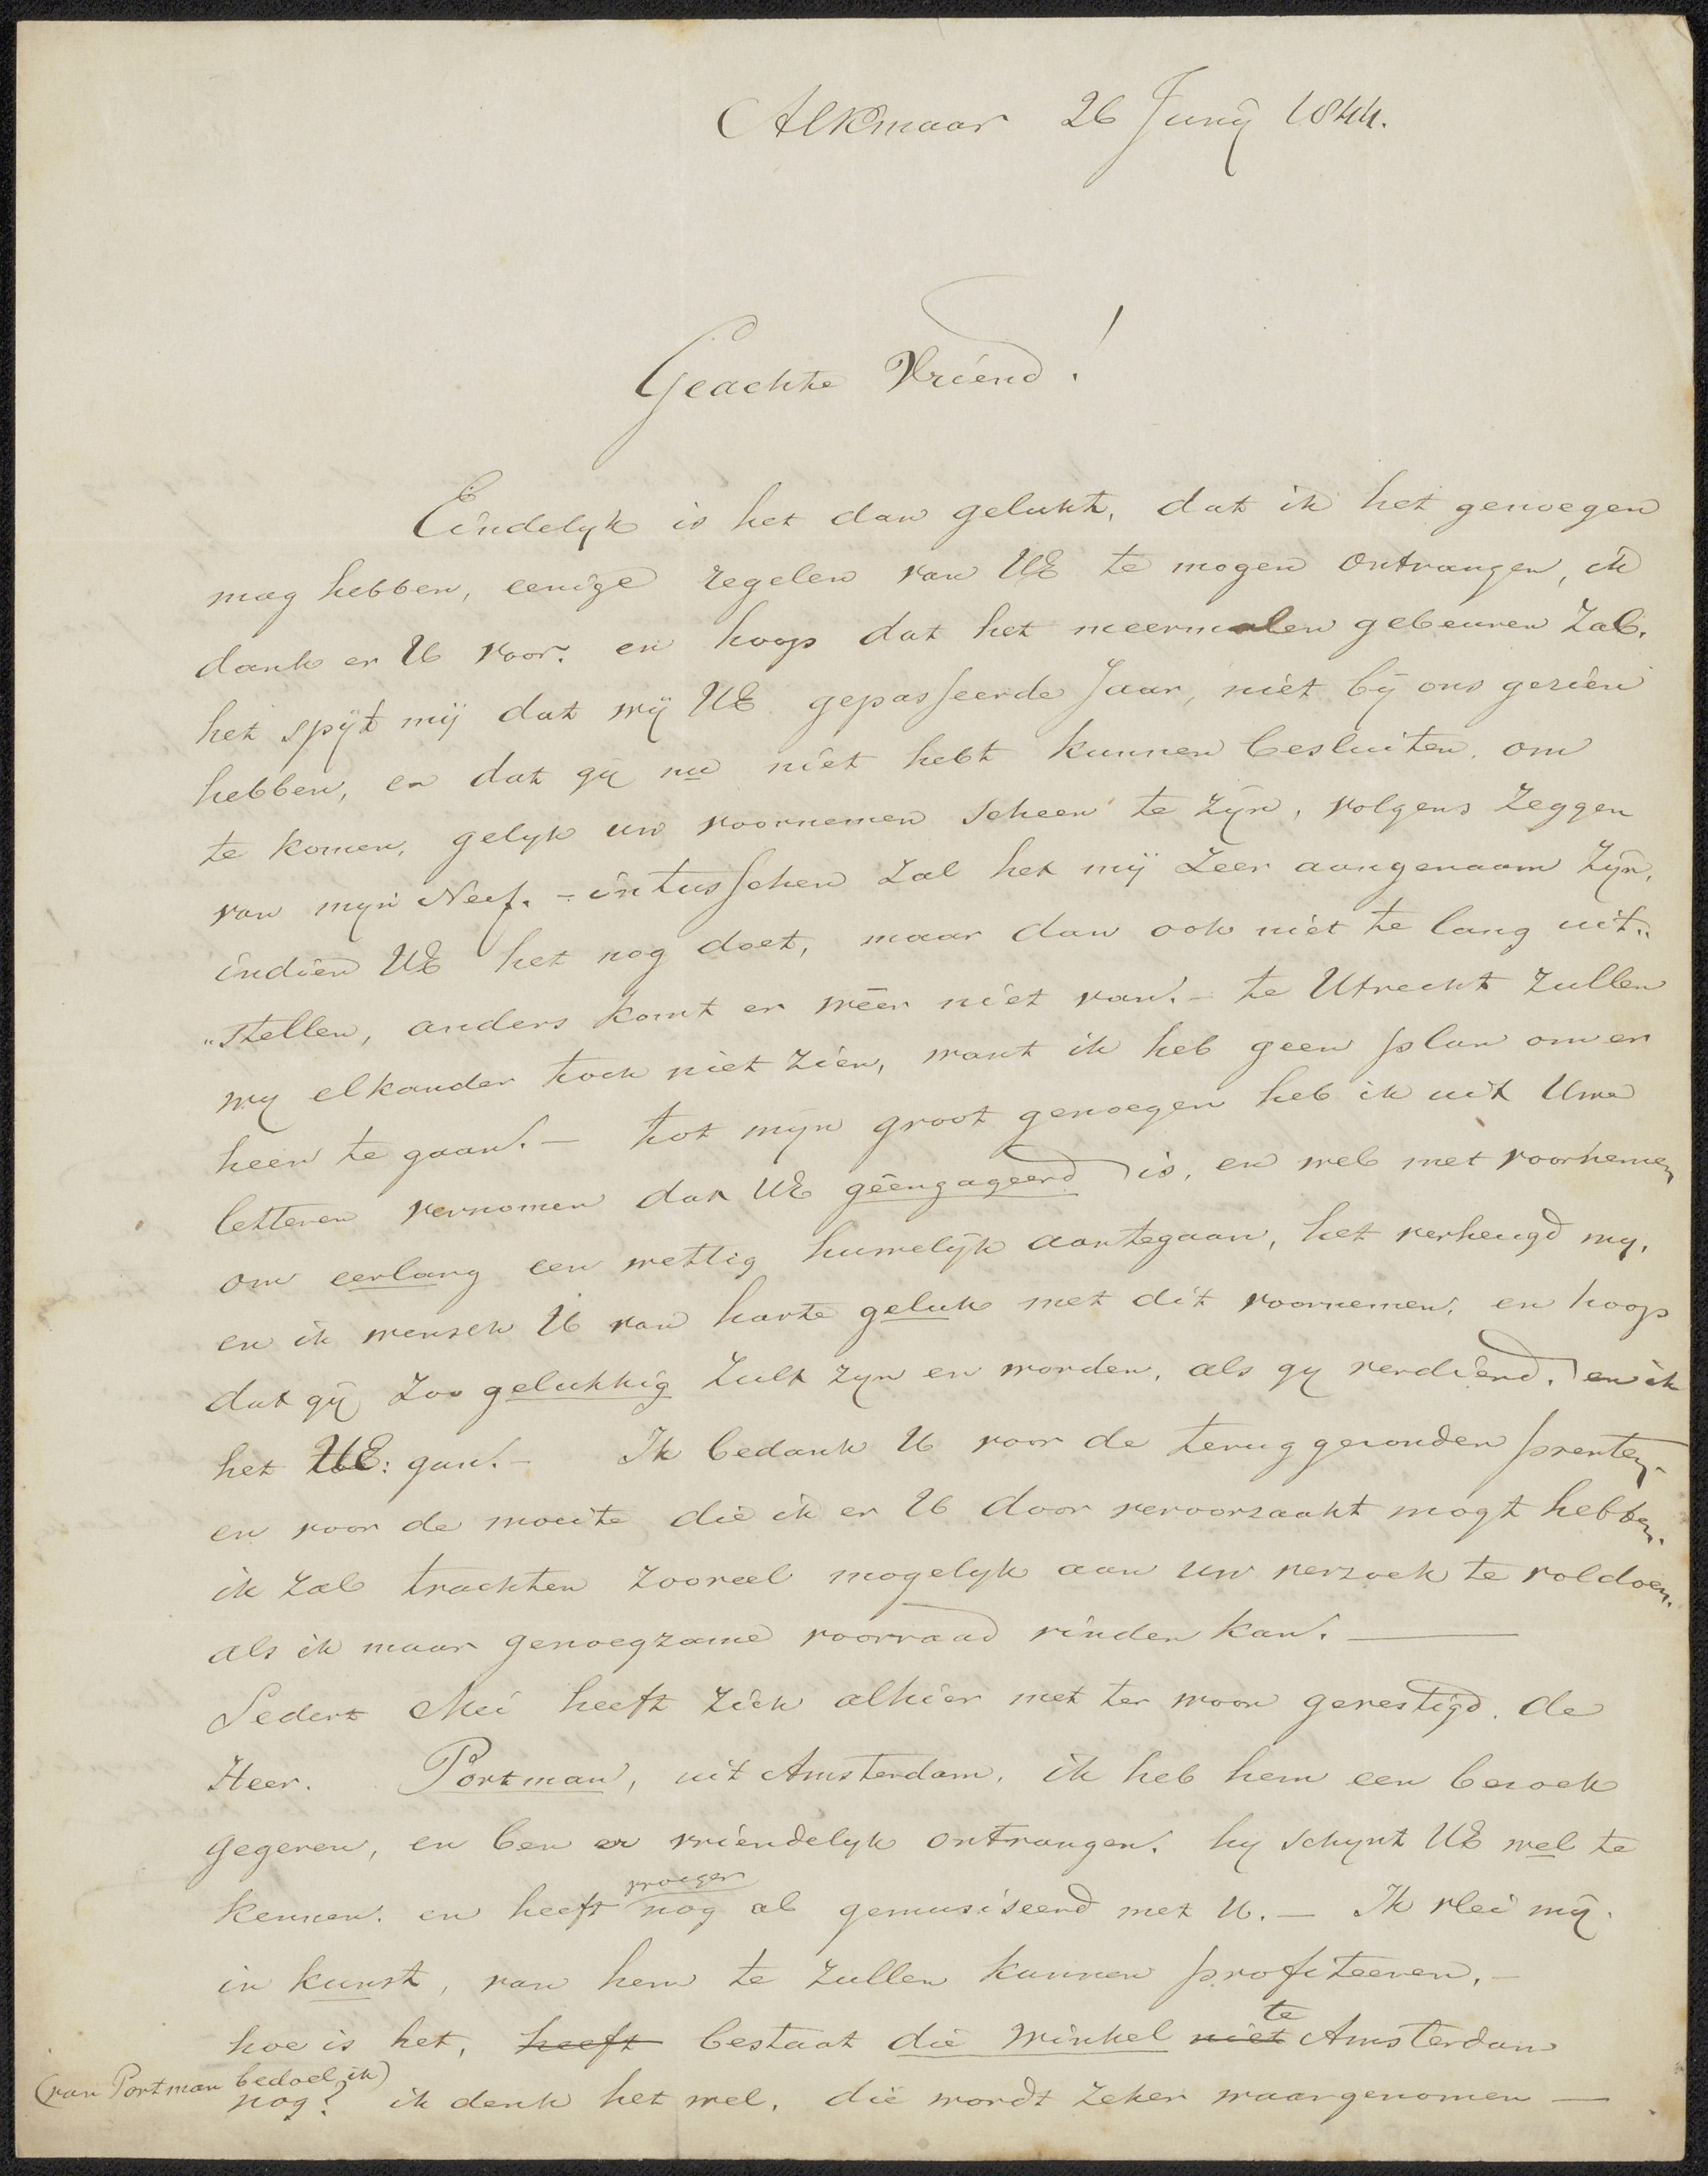 Alkmaar 26 Junij 1844.
Geachte Vriend!
Eindelyk is het dan gelukt, dat ik het genoegen
mag hebben, eenige regelen van UE te mogen ontvangen, ik
dank er U voor. en hoop dat het meermalen gebeuren zal.
het spijt mij dat wij UE gepasseerde Jaar, niet bij ons gezien
hebben, en dat gij nu niet hebt kunnen besluiten, om
te komen, gelyk uw voornemen scheen te zijn, volgens zeggen
van myn Neef. - intusschen zal het mij zeer aangenaam zijn,
indien UE het nog doet, maar dan ook niet te lang uit„
„stellen, anders komt er wéér niet van. - te Utrecht zullen
wy elkander toch niet zien, want ik heb geen plan om er
heen te gaan. - tot myn groot genoegen heb ik uit Uwe
letteren vernomen dat UE géengageerd is, en wel met voornemen
om eerlang een wettig huwelijk aantegaan, het verheugd my,
en ik wensch U van harte geluk met dit voornemen, en hoop
dat gij zoo gelukkig zult zyn en worden, als gy verdiend, en ik
het UE: gun. - Ik bedank U voor de terug gezonden prenten,
en voor de moeite die ik er U door veroorzaakt mogt hebben.
ik zal trachten zooveel mogelyk aan uw verzoek te voldoen,
als ik maar genoegzame voorraad vinden kan. —
Sedert Mei heeft zich alhier met ter woon gevestigd, de
Heer. Portman, uit Amsterdam, ik heb hem een bezoek
gegeven, en ben er vriendelyk ontvangen. hy schynt UE wel te
kennen. en heeft vroeger nog al gemusiseerd met U. - Ik vlei mij.
in kunst, van hem te zullen kunnen profiteeren. -
hoe is het, heeft bestaat die winkel niet te Amsterdam
(van Portman bedoel ik)
nog? ik denk het wel, die wordt zeker waargenomen —